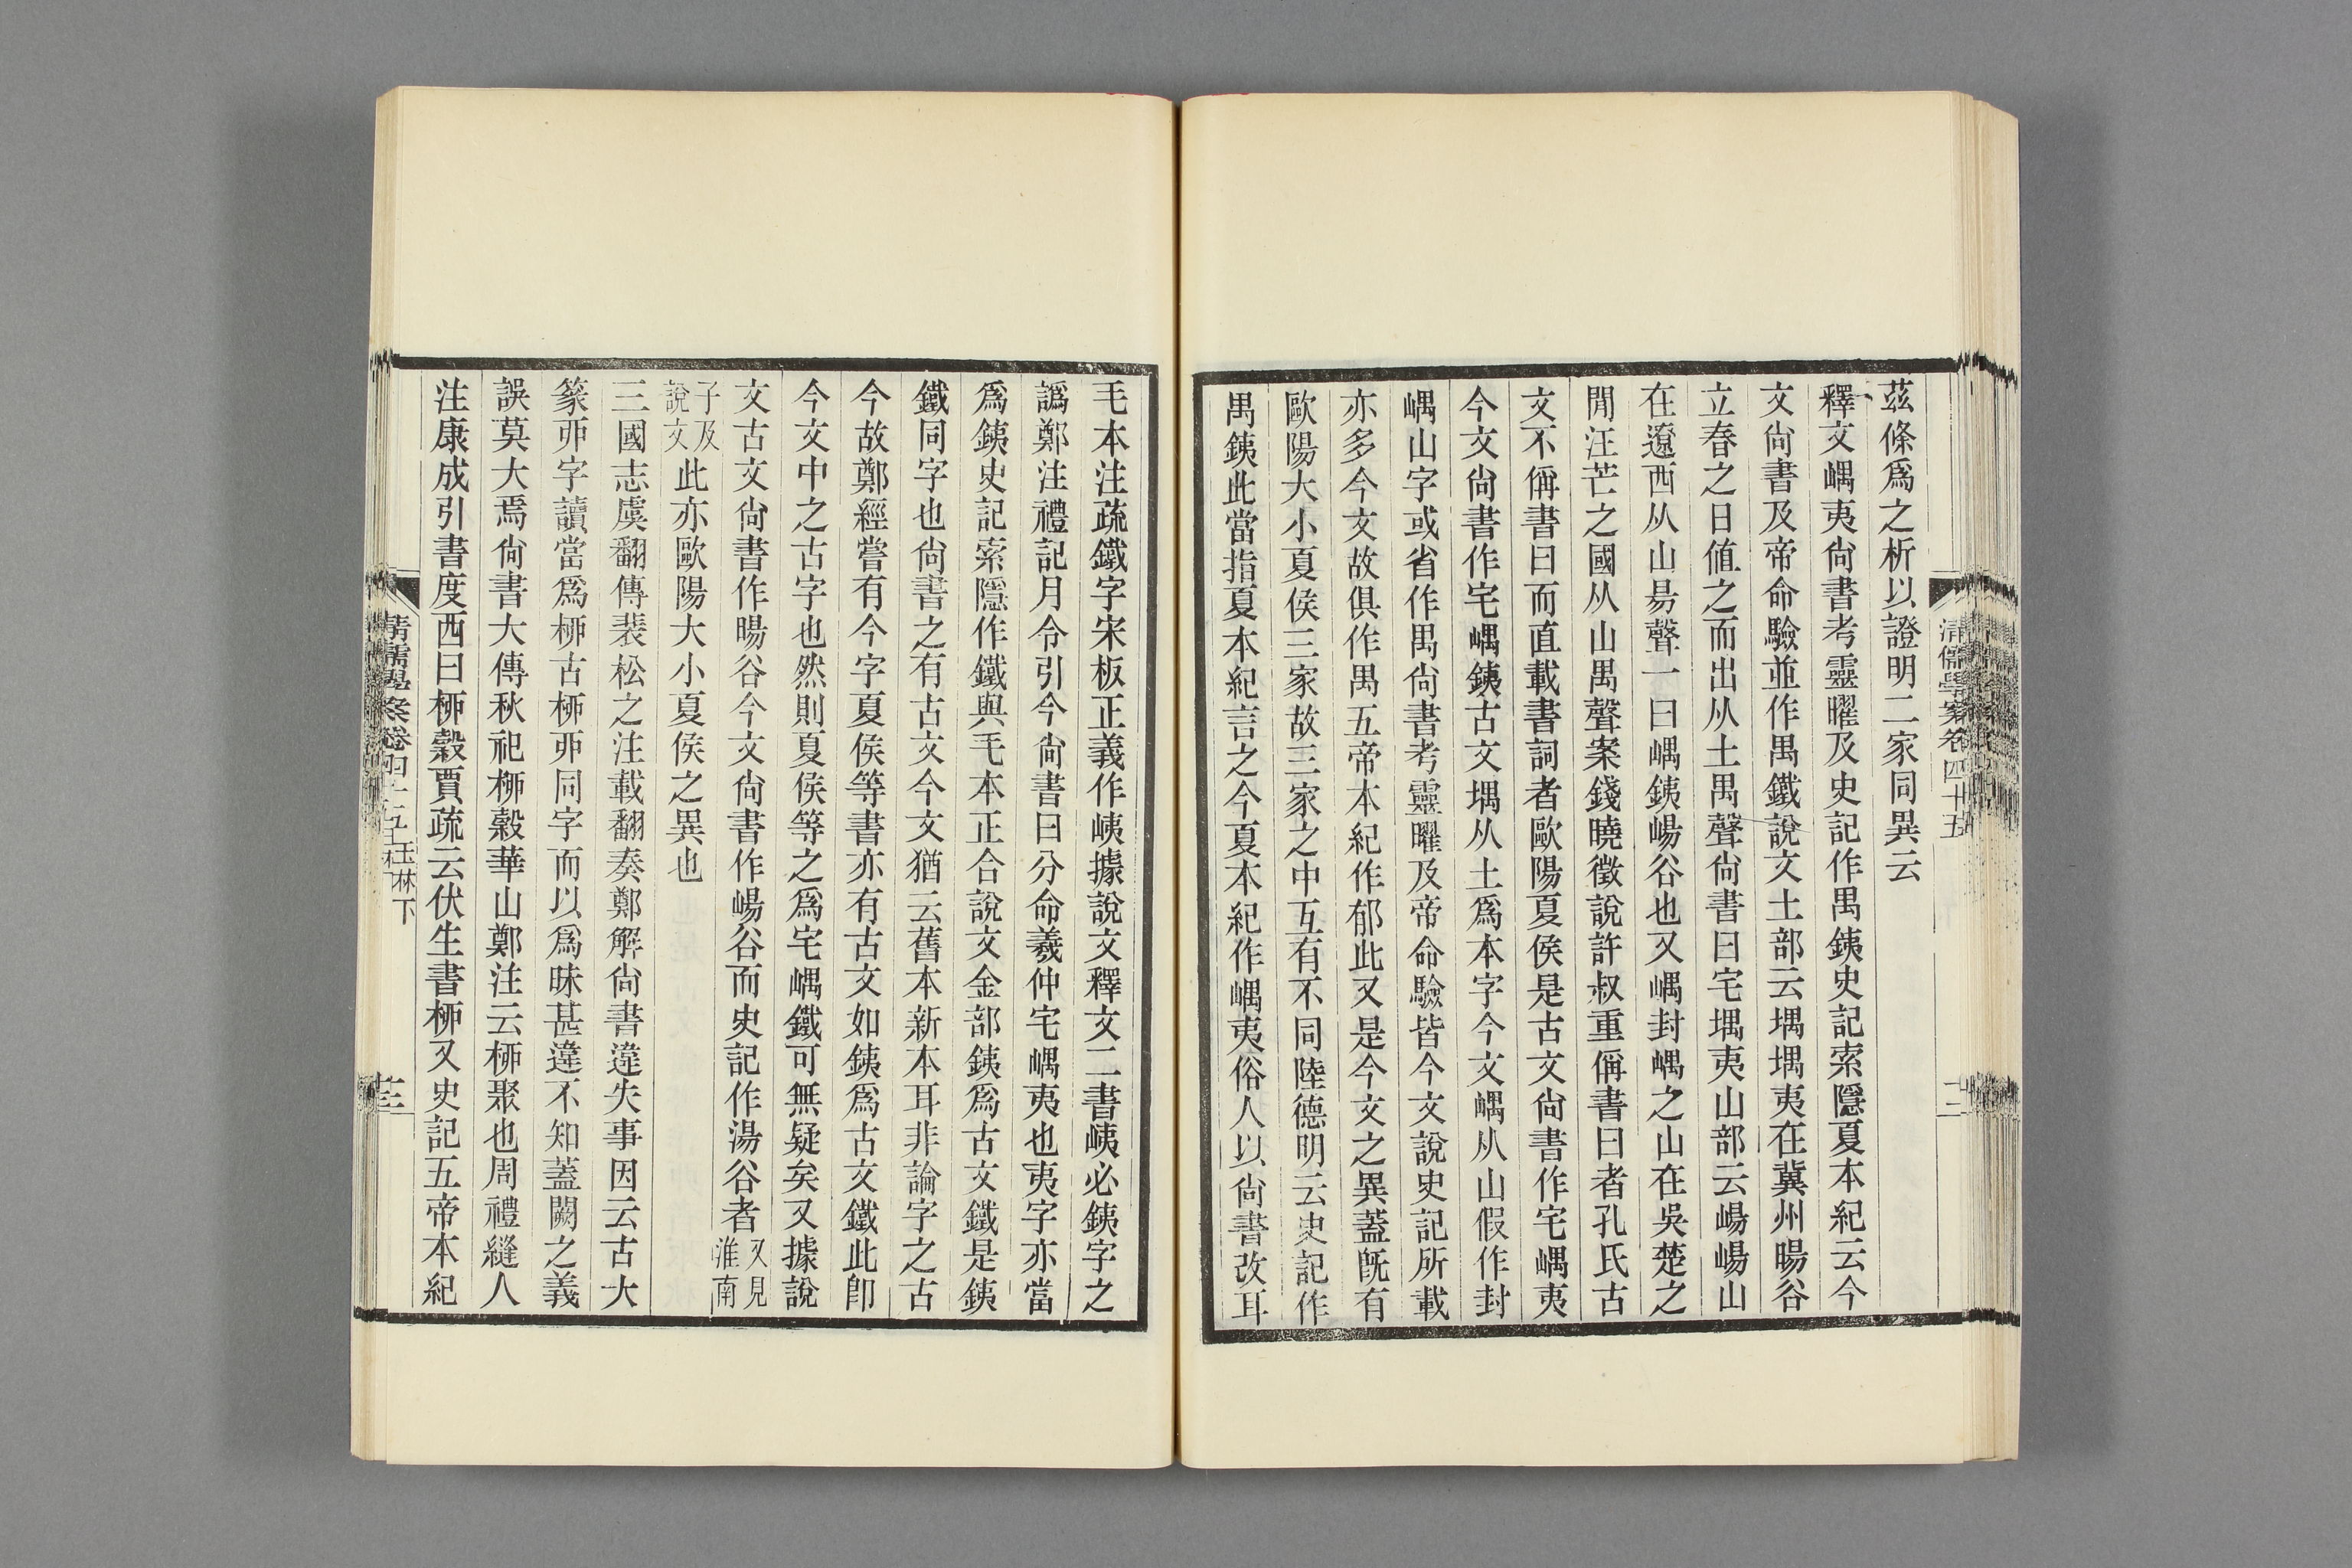 茲條爲之析以證明二家同異云
釋文嵎夷尙書考靈曜及史記作禺銕史記索隱夏本紀云今
文尙書及帝命驗並作禺鐵說文土部云堣堣夷在冀州暘谷
立春之日值之而出从土禺聲尙書曰宅堣夷山部云崵崵山
在遼西从山昜聲一曰嵎銕崵谷也又嵎封嵎之山在吳楚之
閒汪芒之國从山禺聲案錢曉徵說許叔重偁書曰者孔氏古
文不偁書曰而直載書詞者歐陽夏侯是古文尙書作宅嵎夷
今文尙書作宅嵎銕古文堣从土爲本字今文嵎从山假作封
嵎山字或省作禺尙書考靈曜及帝命驗皆今文說史記所載
亦多今文故俱作禺五帝本紀作郁此又是今文之異蓋旣有
歐陽大小夏侯三家故三家之中互有不同陸德明云史記作
禺銕此當指夏本紀言之今夏本紀作嵎夷俗人以尙書改耳
清儒學案卷四十五
十二
毛本注疏鐵字宋板正義作峓據說文釋文二書峓必銕字之
譌鄭注禮記月令引今尙書曰分命羲仲宅嵎夷也夷字亦當
爲銕史記索隱作鐵與毛本正合說文金部銕爲古文鐵是銕
鐵同字也尙書之有古文今文猶云舊本新本耳非論字之古
今故鄭經嘗有今字夏侯等書亦有古文如銕爲古文鐵此卽
今文中之古字也然則夏侯等之爲宅嵎鐵可無疑矣又據說
文古文尙書作暘谷今文尙書作崵谷而史記作湯谷者又見淮南
子及說文此亦歐陽大小夏侯之異也
三國志虞翻傳裴松之注載翻奏鄭解尙書違失事因云古大
篆戼字讀當爲桺古桺戼同字而以爲昧甚違不知蓋闕之義
誤莫大焉尙書大傳秋祀桺穀華山鄭注云桺聚也周禮縫人
注康成引書度西曰桺穀賈疏云伏生書桺又史記五帝本紀
清儒學案卷四十五 艮庭下
十三